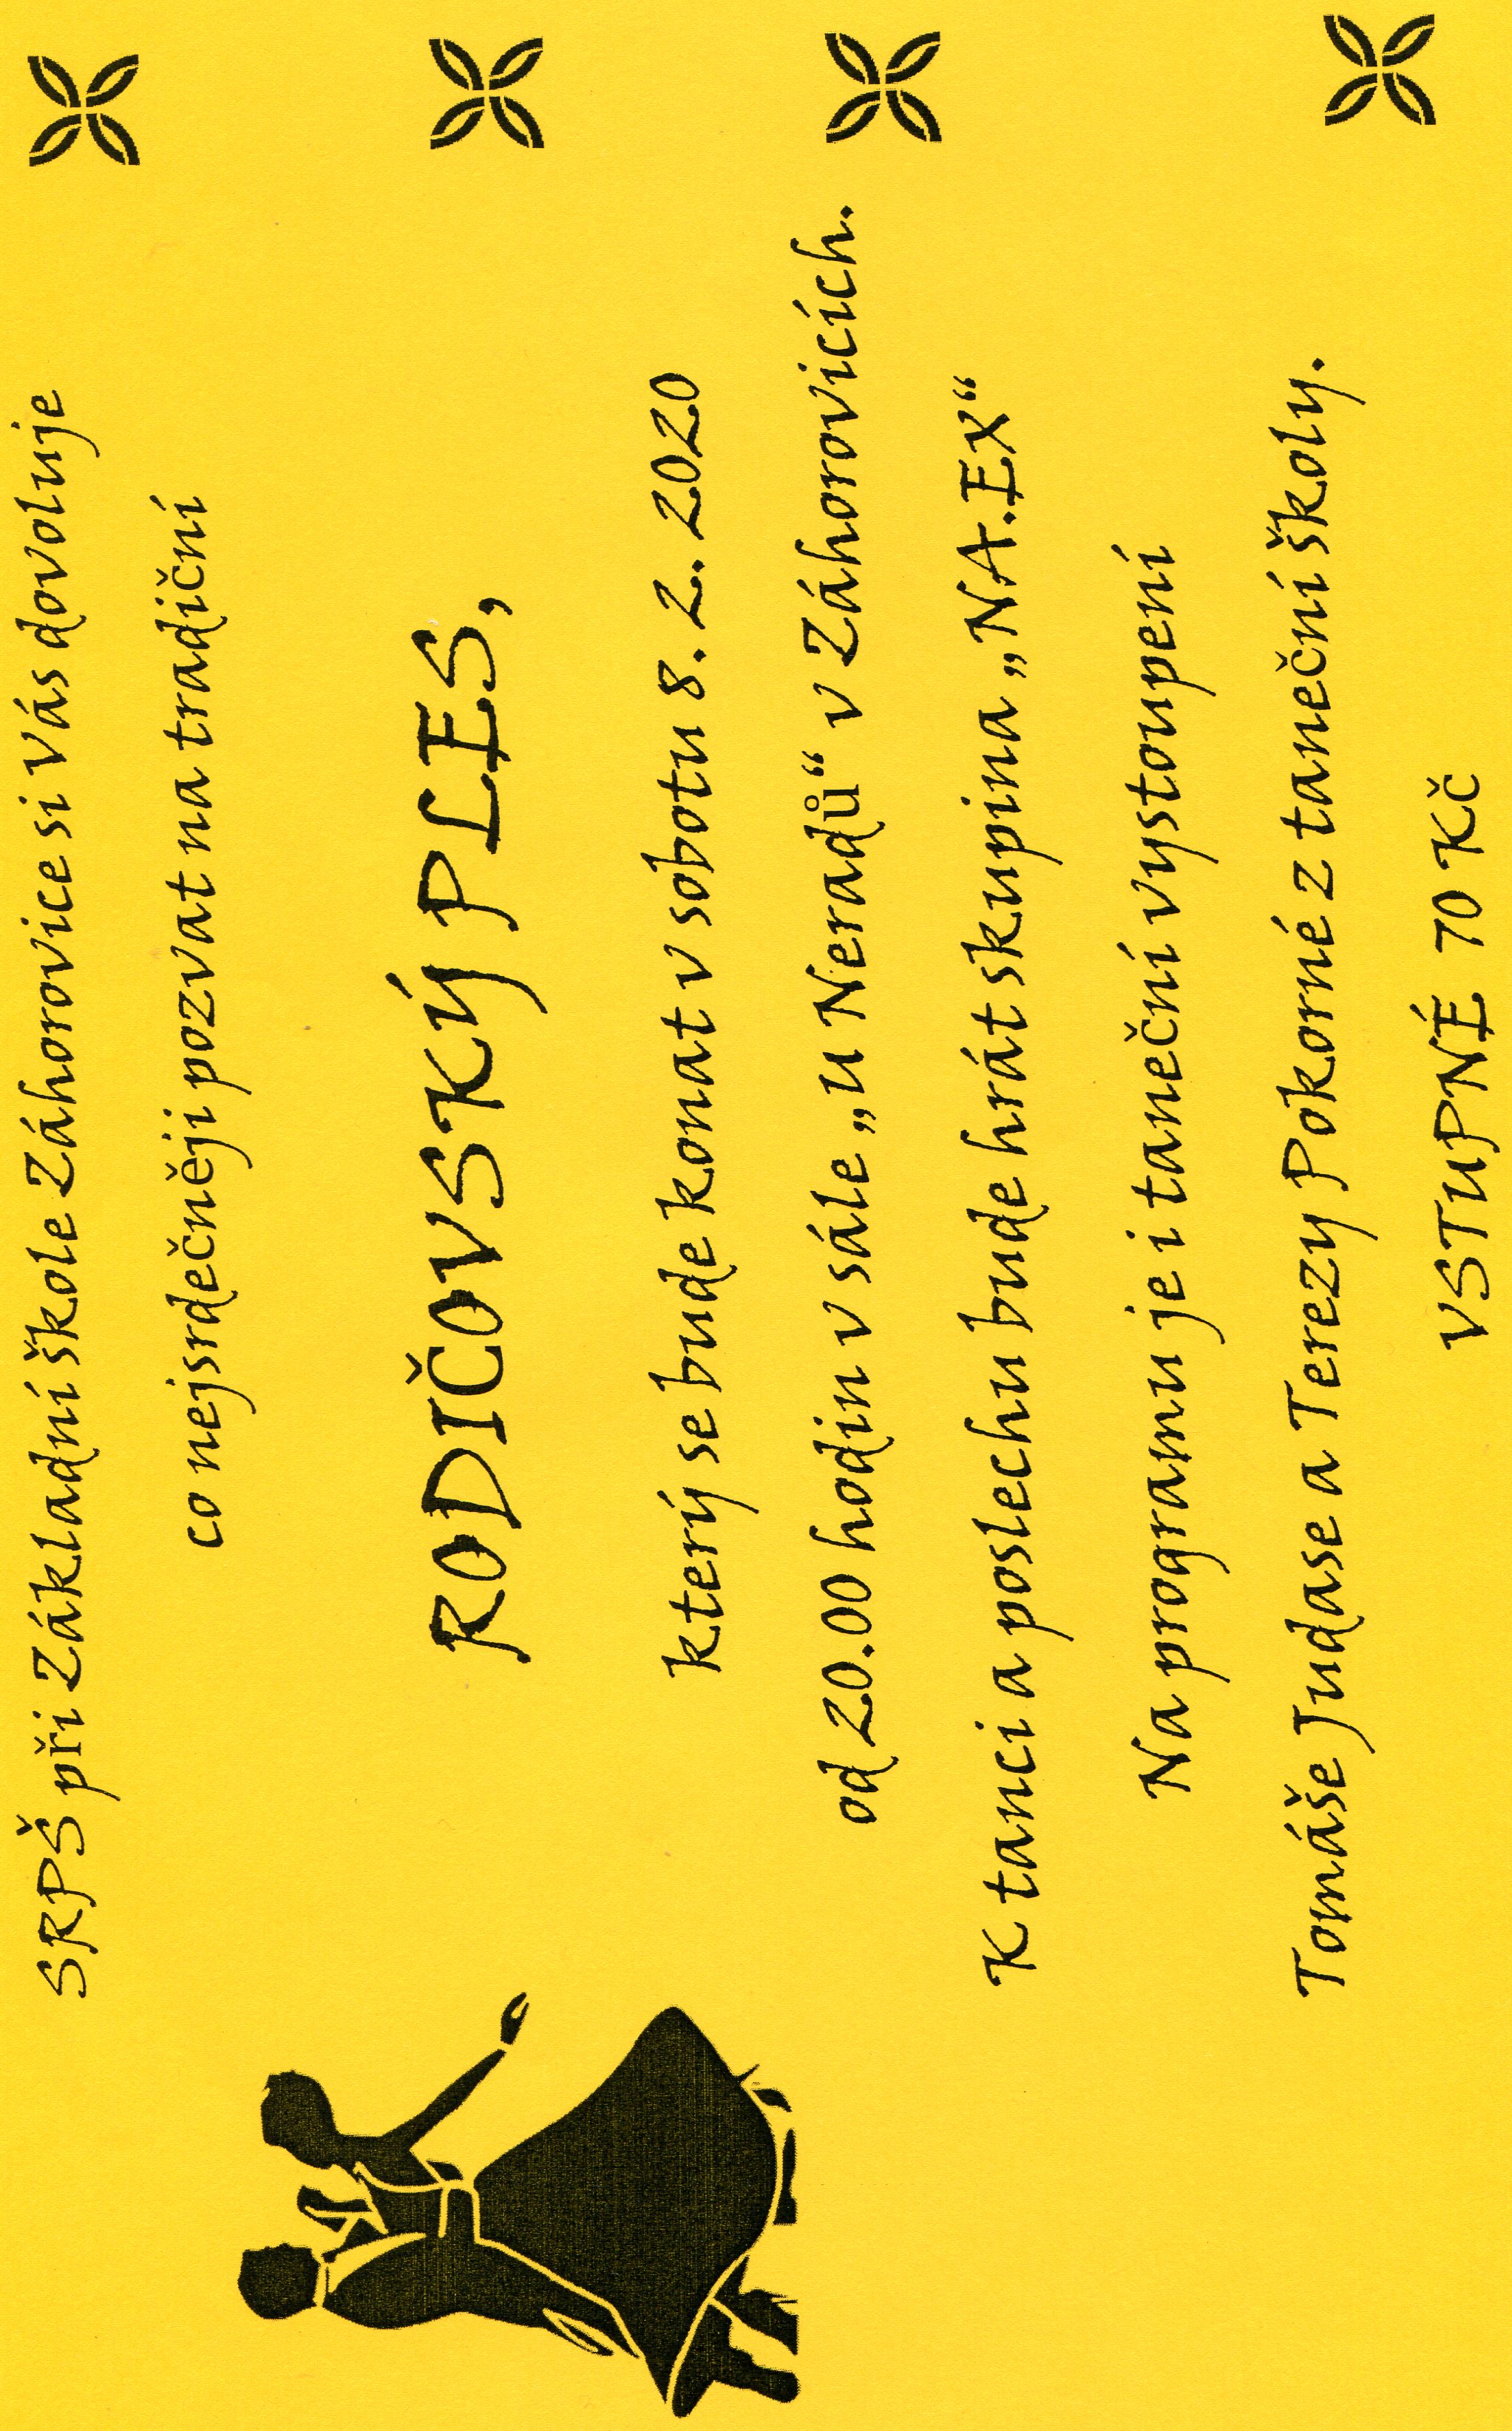 SRPŠ při Základní škole Záhorovice si Vás dovoluje
co nejsrdečněji pozvat na tradiční
RODIČOVSKÝ PLES,
který se bude konat v sobotu 8. 2. 2020
od 20.00 hodin v sále „u Neradů“ v Záhorovicích.
K tanci a poslechu bude hrát skupina „NA.EX“
Na programu je i taneční vystoupení
Tomáše Judase a Terezy Pokorné z taneční školy.
VSTUPNÉ 70 Kč